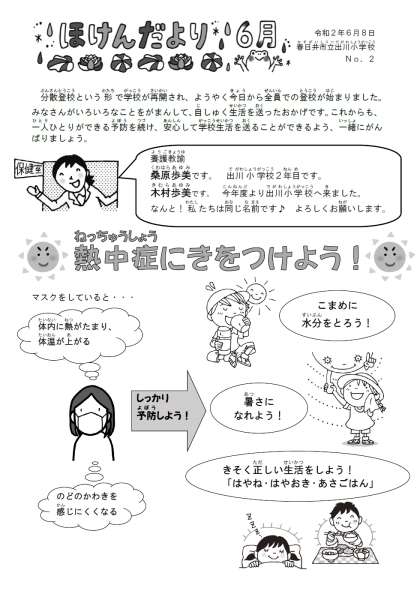 ほけんだより 6月
令和2年6月8日
春日井市立出川小学校
No. 2
分散登校という形で学校が再開され、ようやく今日から全員での登校が始まりました。
みなさんがいろいろなことをがまんして、自しゅく生活を送ったおかげです。これからも、
一人ひとりができる予防を続け、安心して学校生活を送ることができるよう、一緒にがん
ばりましょう。
保健室
養護教諭
桑原歩美です。 出川小学校2年目です。
木村歩美です。 今年度より出川小学校へ来ました。
なんと!私たちは同じ名前です♪ よろしくお願いします。
ねっちゅうしょう
熱中症にきをつけよう!
マスクをしていると・・・
体内に熱がたまり、
体温が上がる
しっかり
予防しよう!
のどのかわきを
感じにくくなる
こまめに
水分をとろう!
暑さに
なれよう!
きそく正しい生活をしよう!
「はやね・はやおき・あさごはん」